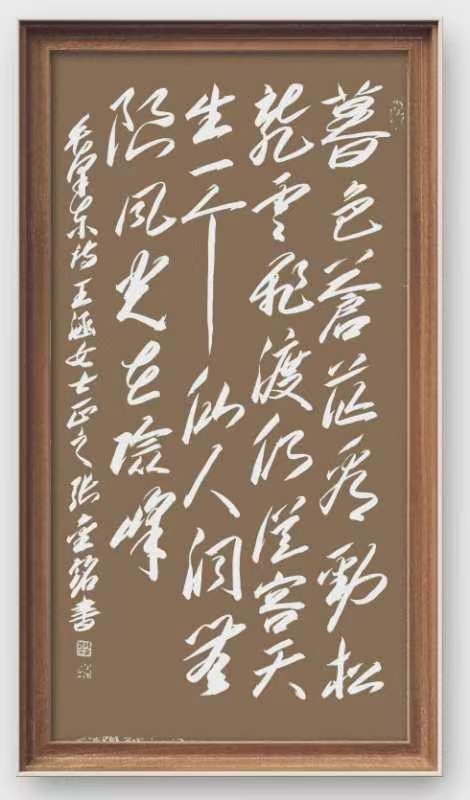 暮色蒼茫看勁松
亂雲飛渡仍從容天
生一个仙人洞無
限風光在險峰
毛澤東詩 王涵女士正之 張金銘書